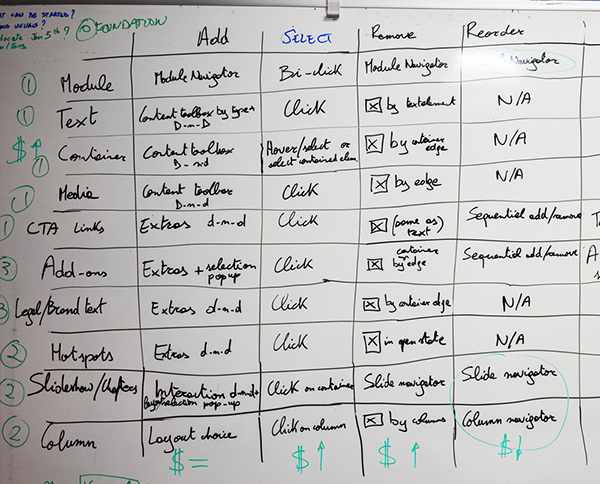 CAN BE STARTED?
Jan 5th? FOUNDATION
Add SELECT Remove Reorder
① Module Module Navigator Bi-click Module Navigator Navigator
① Text Content toolbox by types D-n-D Click ☒ by text element N/A
$↑ ① Container Content toolbox D-n-d Hover/select or select contained elem. ☒ by container edge N/A
① Media Content toolbox D-n-d Click ☒ by edge N/A
① CTA Links Extras d-n-d Click ☒ (same as) text Sequentiel add/remove
③ Add-ons Extras + selection popup Click ☒ by container edge Sequentiel add/remove A
③ Legal/Brand text Extras d-n-d Click ☒ by container edge N/A
② Hotspots Extras d-n-d Click ☒ in open state N/A
② Slideshow/Chapters Interaction d-n-d + selection pop-up Click on container Slide navigator Slide navigator
② Column Layout choice Click on column ☒ by columns Column navigator
$= $↑ $↑ $